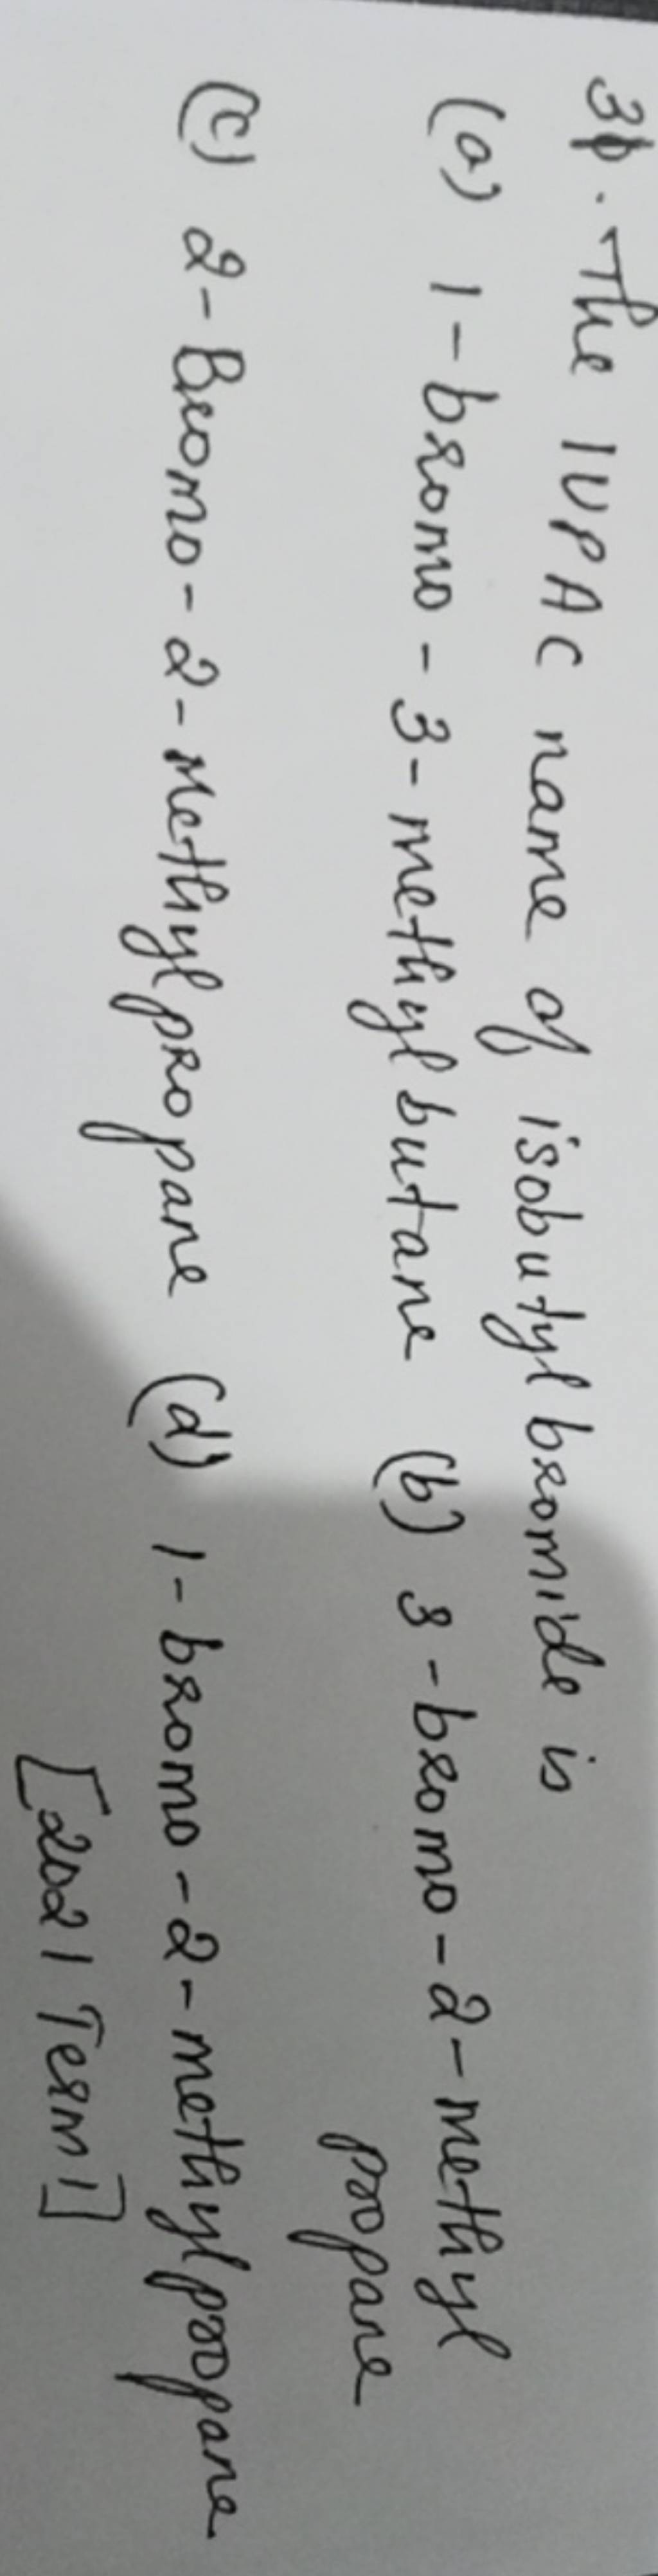 31. The IUPAC name of isobutyl bromide is
(a) 1-bromo-3-methyl butane (b) 3-bromo-2-methyl
propane
(c) 2-Bromo-2-Methylpropane (d) 1-bromo-2-methylpropane
[2021 Term 1]